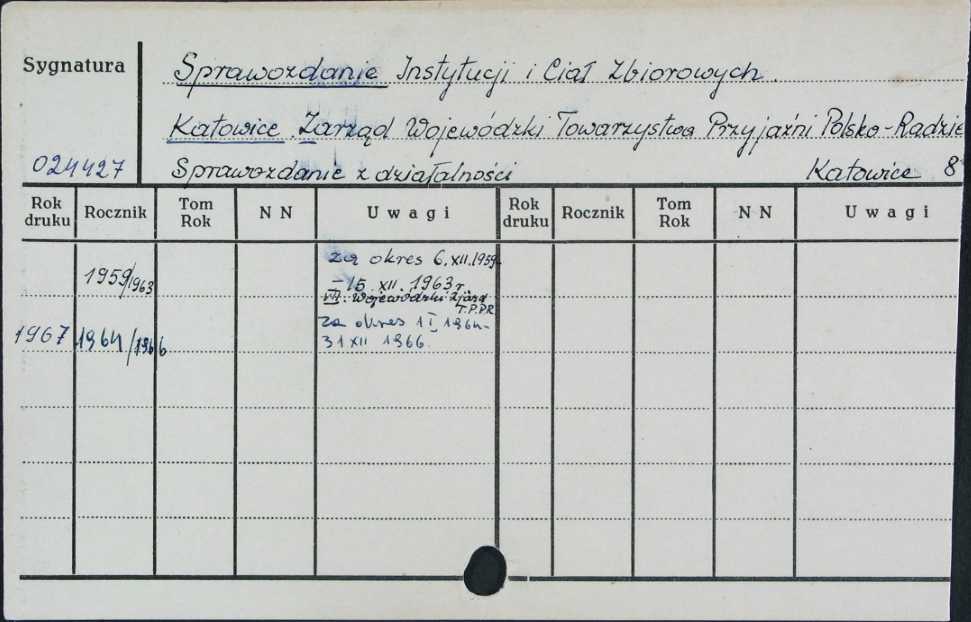 Sygnatura
Sprawozdanie Instytucji i Ciał Zbiorowych.
Katowice. Zarząd Wojewódzki Towarzystwa Przyjaźni Polsko-Radzie
024427 Sprawozdanie z działalności Katowice 8
Rok druku Rocznik Tom Rok N N Uwagi Rok druku Rocznik Tom Rok N N Uwagi
1959/1963 za okres 6.XII.1959.
-15.XII.1963r.
VII. Wojewódzki Zjazd
T.P.P.R
1967 1964/1966 za okres 1 I 1964-
31 XII 1966.